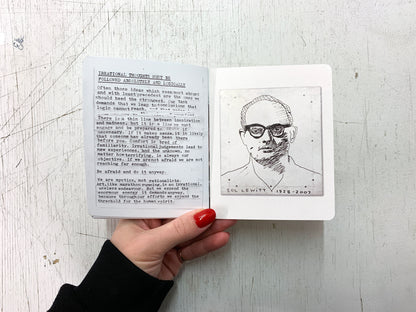 IRRATIONAL THOUGHTS MUST BE
FOLLOWED ABSOLUTELY AND LOGICALLY
Often those ideas which seem most absurd
and with least precedent are the ones we
should heed the strongest. Our task
demands that we leap to conclusions that
logic cannot reach,
There is a thin line between imagination
and madness, but it is a line we must
and be prepared to if
necessary. If it makes sense, it is likely
that someone has already been there
before you. Comfort is bred of
familiarity. Irrational judgements lead to
new experiences, and the unknown, no
matter how terrifying, is always our
objective. If we are not afraid we are not
reaching far enough.
Be afraid and do it anyway.
We are mystics, not rationalists.
Art, like marathon running, is an irrational,
useless endeavour. But we expend the
enormous energy it demands anyway,
because through our efforts we expand the
threshold for the human spirit.
SOL LEWITT · 1928-2007